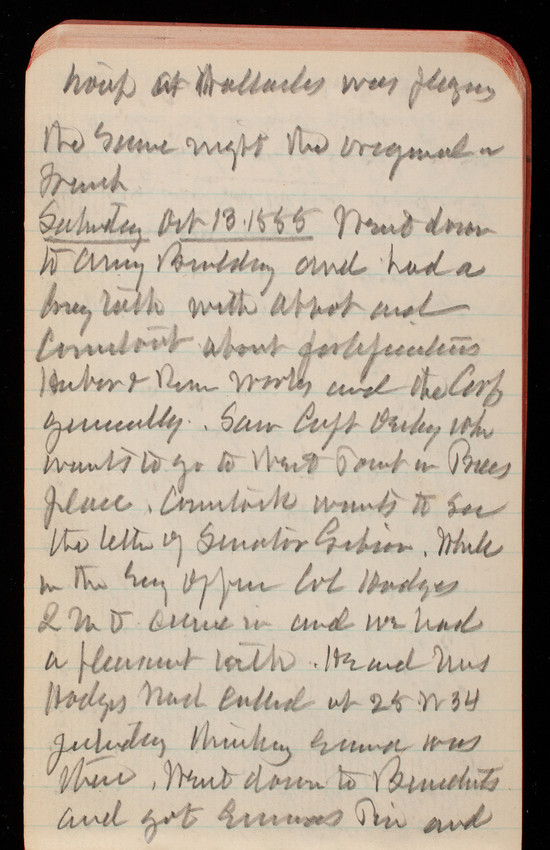 troup at Wallacks was playing
the same night the original in
French
Saturday Oct 13. 1888 Went down
to Army Building and had a
long talk with Abbot and
Comstock about fortifications
Harbor & River works and the Corps
generally. Saw Capt Derby who
wants to go to West Point in
place. Comstock wants to see
the letter of Senator Gibson. While
in the Eng office Col Hodges
Q M D came in and we had
a pleasant talk. He and Mrs
Hodges had called at 28 W 34
yesterday thinking Emma was
there. Went down to Benedicts
and got Emmas Pin and